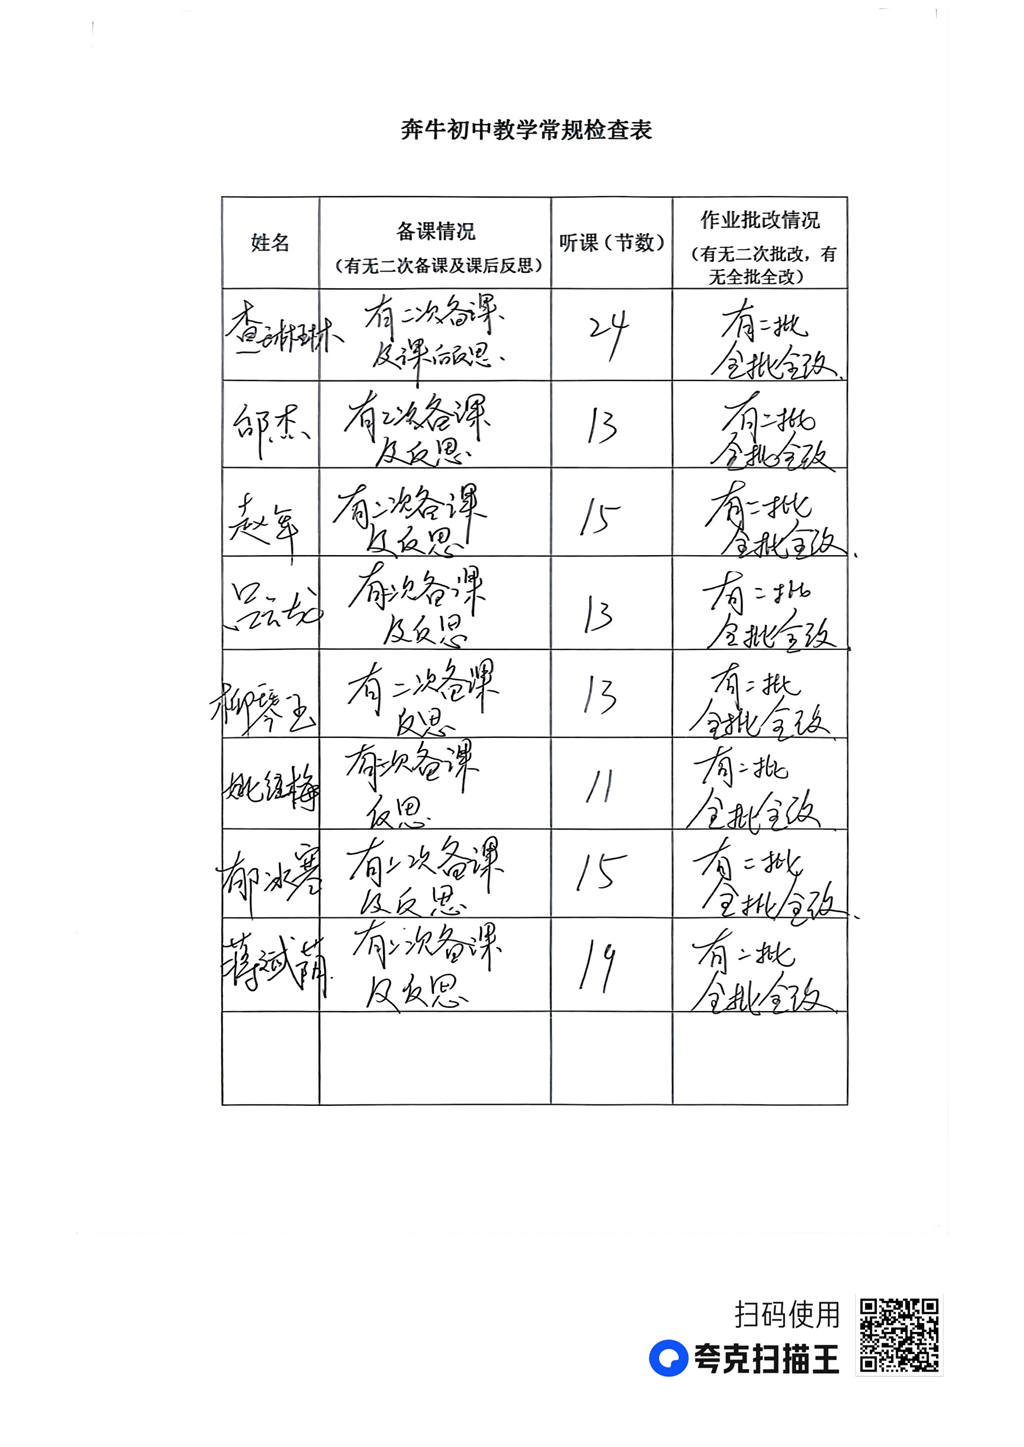 奔牛初中教学常规检查表
姓名
备课情况
（有无二次备课及课后反思）
听课（节数）
作业批改情况
（有无二次批改，有
无全批全改）
查琳琳
有二次备课
及课后反思.
24
有二批
全批全改.
邰杰
有二次备课
及反思.
13
有二批
全批全改
赵军
有二次备课
及反思
15
有二批
全批全改.
吕云龙
有二次备课
及反思
13
有二批
全批全改.
柳琴玉
有二次备课
反思
13
有二批
全批全改.
姚维梅
有二次备课
反思.
11
有二批
全批全改.
郁冰寒
有二次备课
及反思.
15
有二批
全批全改.
蒋斌荫
有二次备课
及反思.
19
有二批
全批全改.
扫码使用
夸克扫描王